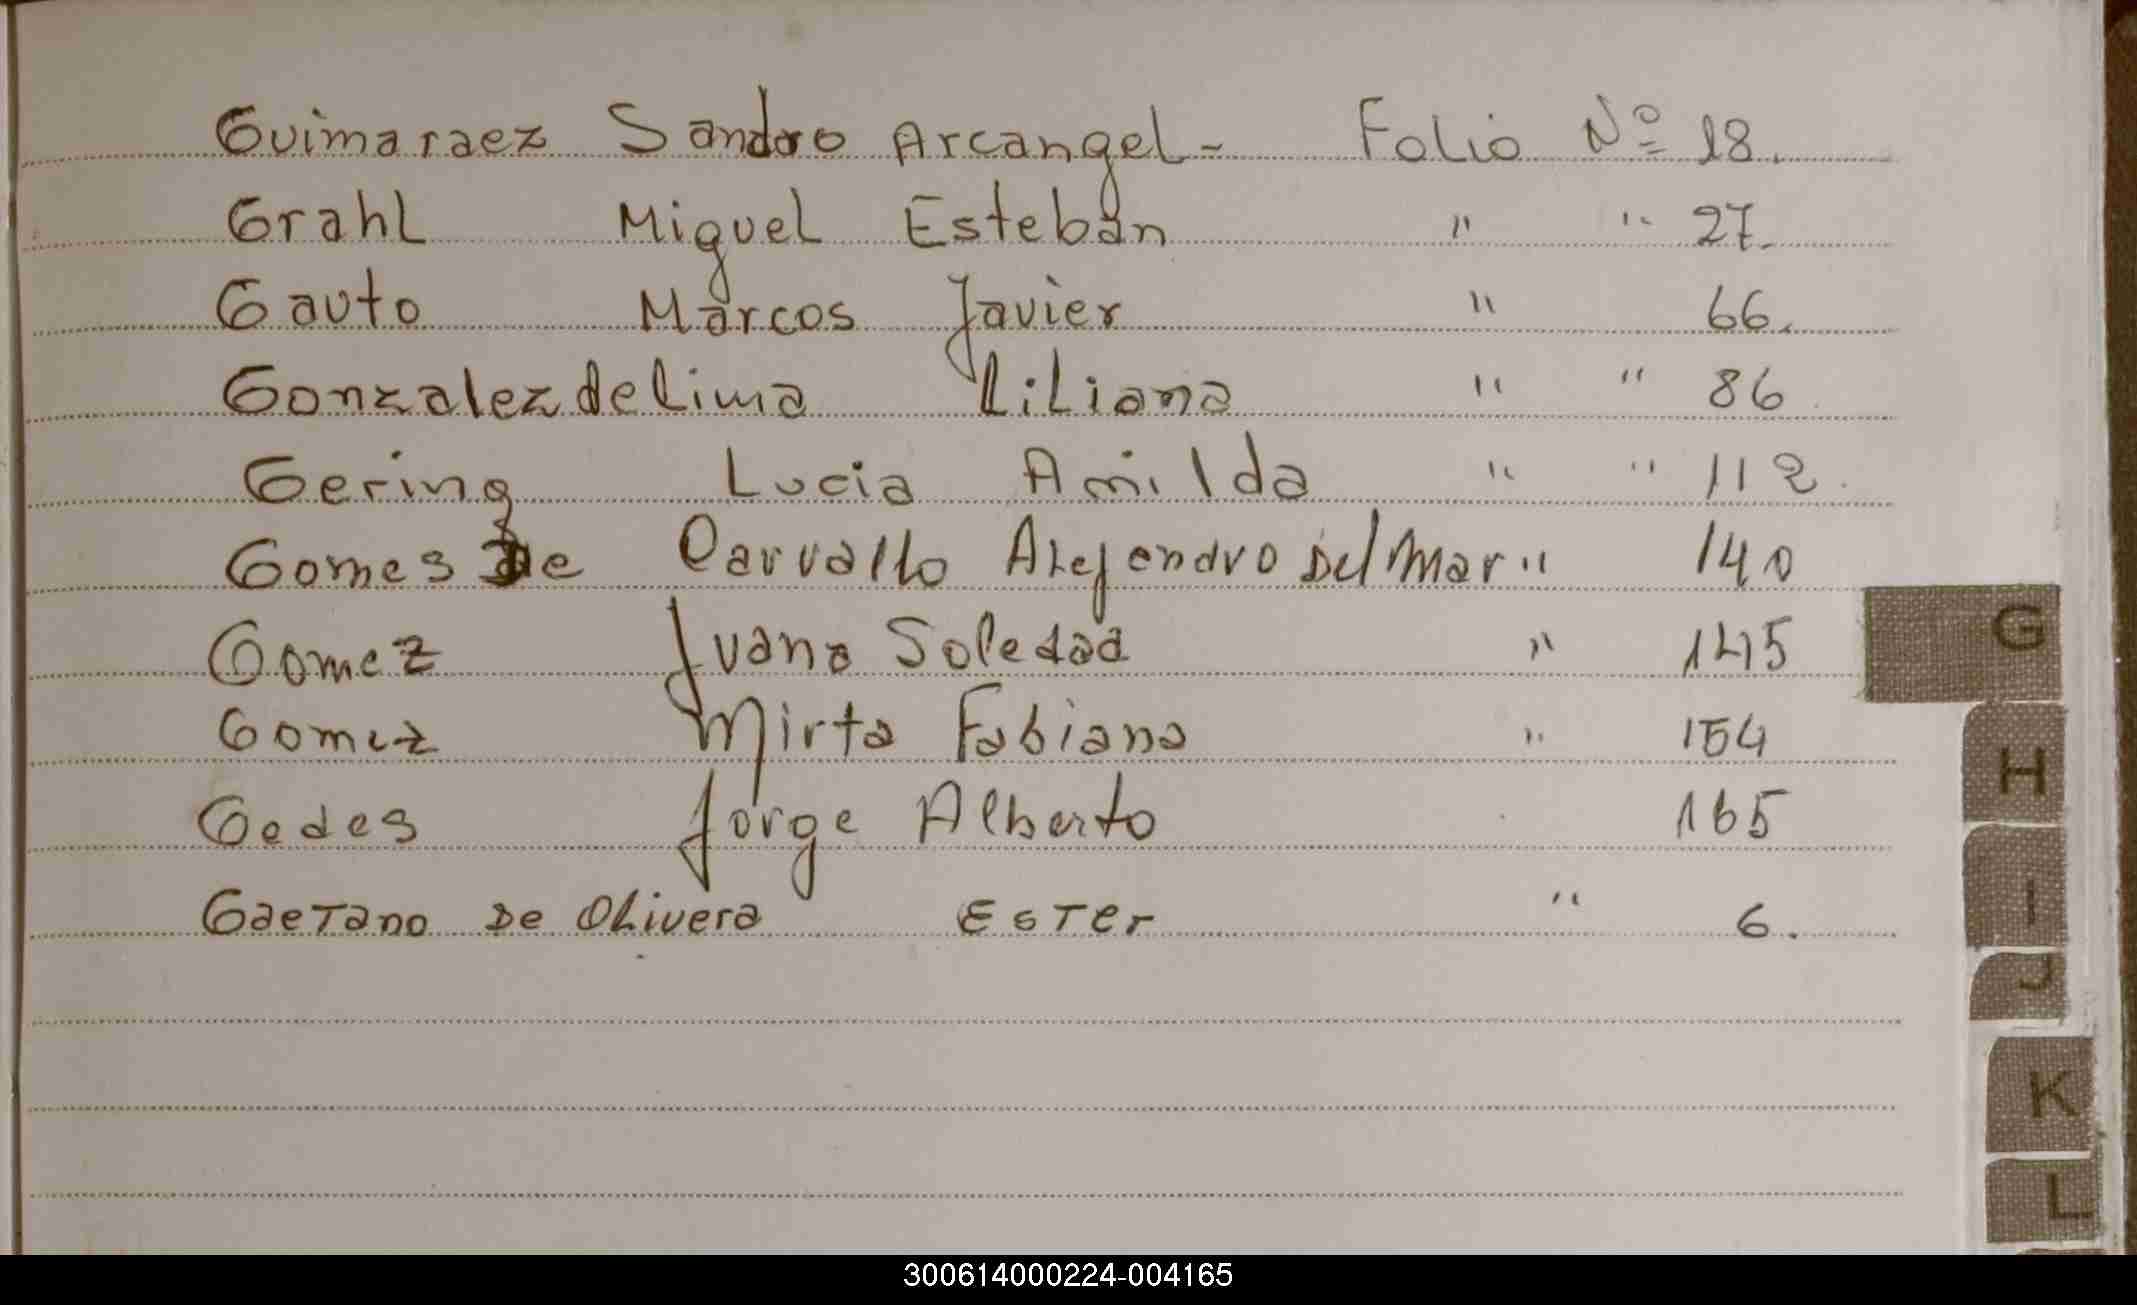 Guimaraez Sandro Arcangel - Folio Nº 18.
Grahl Miguel Esteban " " 27.
Gauto Marcos Javier " 66.
Gonzalez de Lima Liliana " " 86
Gering Lucia Amilda " " 112.
Gomes De Carvallo Alejendro Del Mar " 140
Gomez Juana Soledad " 145
Gomez Mirta Fabiana " 154
Gedes Jorge Alberto 165
Gaetano De Olivera Ester " 6.
G
H
I
J
K
L
300614000224-004165